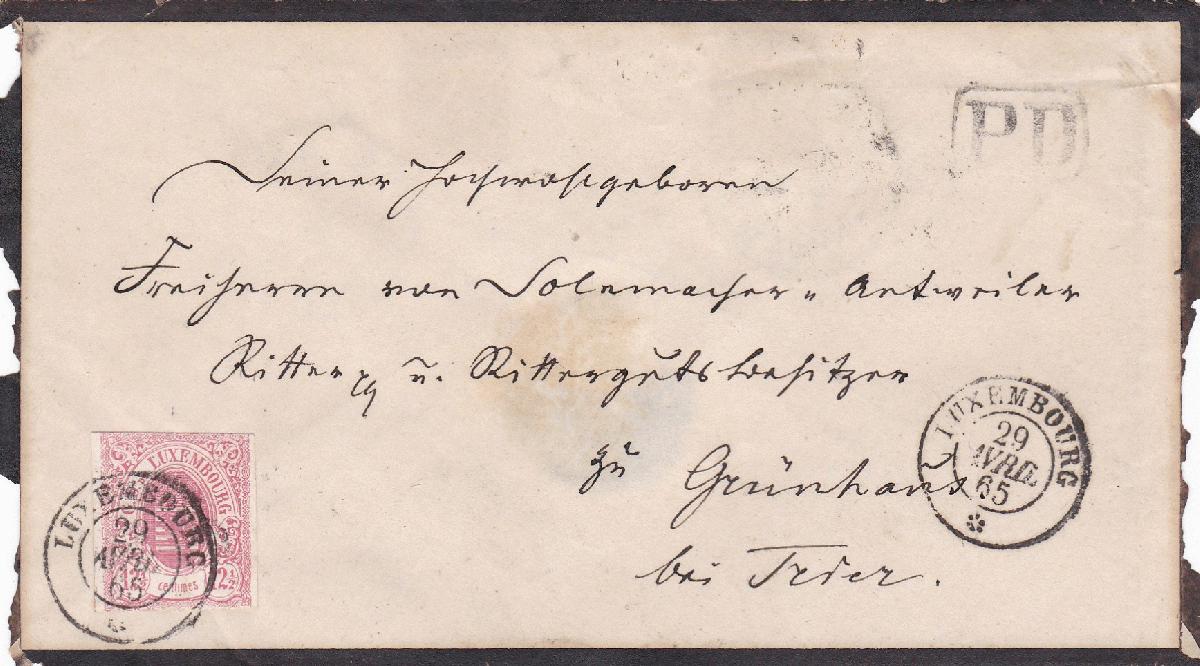 PD
Seiner Hochwohlgeboren
Freiherrn von Solemacher-Antweiler
Ritter u. Rittergutsbesitzer
zu Grünhaus
bei Trier.
LUXEMBOURG
29
AVRIL
65
LUXEMBOURG
12½ centimes
LUXEMBOURG
29
AVRIL
65